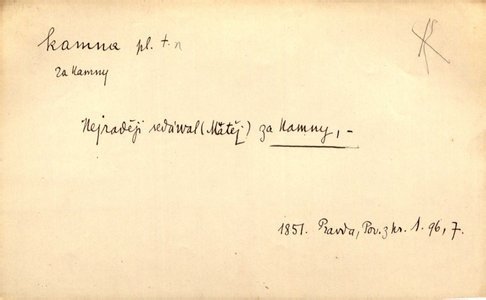 kamna pl. t. n
za kamny
Nejraději sedával (Matěj) za kamny, –
1851. Pravda, Pov. z kr. 1. 96, 7.